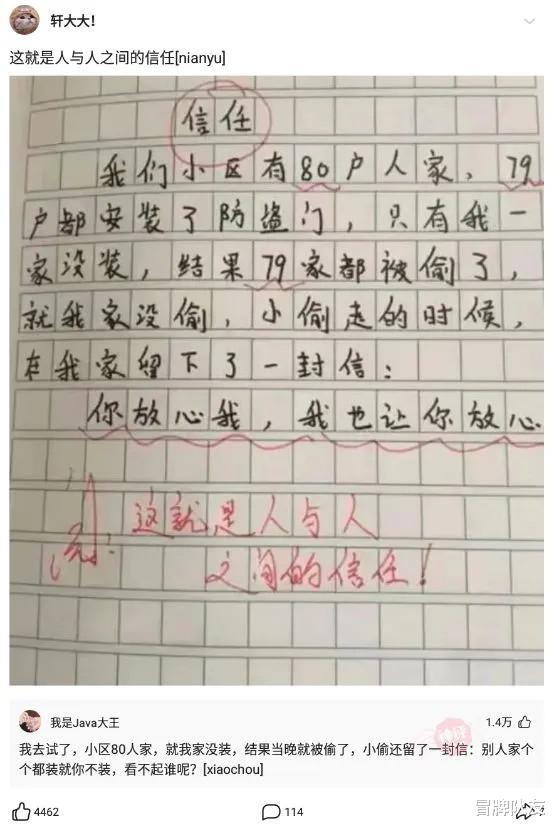 轩大大！
这就是人与人之间的信任[nianyu]
信任
我们小区有80户人家，79
户都安装了防盗门，只有我一
家没装，结果79家都被偷了，
就我家没偷，小偷走的时候，
在我家留下了一封信：
你放心我，我也让你放心
这就是人与人
之间的信任！
我是Java大王
神评
1.4万
我去试了，小区80人家，就我家没装，结果当晚就被偷了，小偷还留了一封信：别人家个
个都装就你不装，看不起谁呢？[xiaochou]
4462
114
冒牌队友